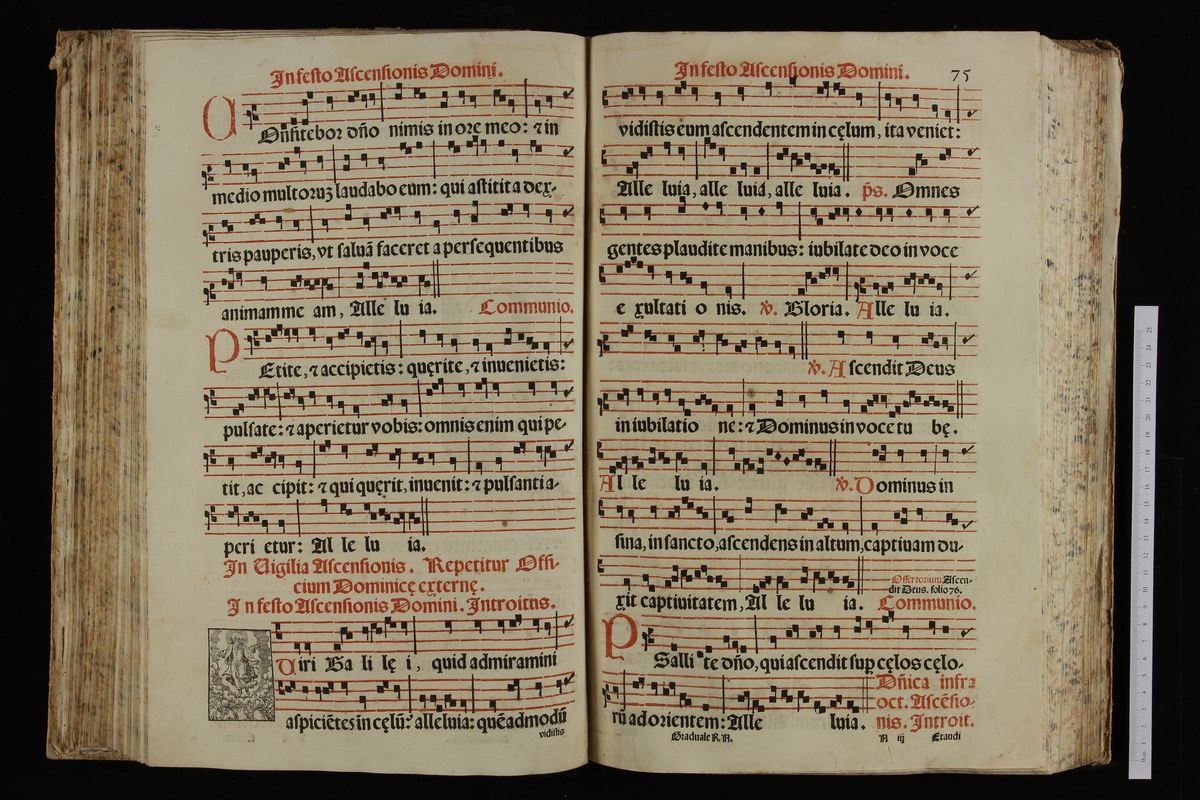 In festo Ascensionis Domini.
COnfitebor dño nimis in ore meo: ⁊ in
medio multoruꝫ laudabo eum: qui astitit a dex-
tris pauperis, vt saluã faceret a persequentibus
animam me am, Alle lu ia. Communio.
PEtite, ⁊ accipietis: quęrite, ⁊ inuenietis:
pulsate: ⁊ aperietur vobis: omnis enim qui pe-
tit, ac cipit: ⁊ qui quęrit, inuenit: ⁊ pulsanti a-
peri etur: Al le lu ia.
In Uigilia Ascensionis. Repetitur Offi-
cium Dominicę externę.
In festo Ascensionis Domini. Introitus.
Uiri Ga li lę i, quid admiramini
aspiciẽtes in cęlũ? alleluia: quẽadmodũ
vidistis
In festo Ascensionis Domini. 75
vidistis eum ascendentem in cęlum, ita veniet:
Alle luia, alle luia, alle luia. p̃s. Omnes
gentes plaudite manibus: iubilate deo in voce
e xultati o nis. ℣. Gloria. Alle lu ia.
℣. Ascendit Deus
in iubilatio ne: ⁊ Dominus in voce tu bę.
Al le lu ia. ℣. Dominus in
sina, in sancto, ascendens in altum, captiuam du-
Offertorium Ascen-
dit Deus. folio 76.
xit captiuitatem, Al le lu ia. Communio.
PSalli te dño, qui ascendit suꝑ cęlos cęlo-
rũ ad orientem: Alle luia.
Dñica infra
oct. Ascẽsio-
nis. Introit.
Graduale R. N. iij Exaudi